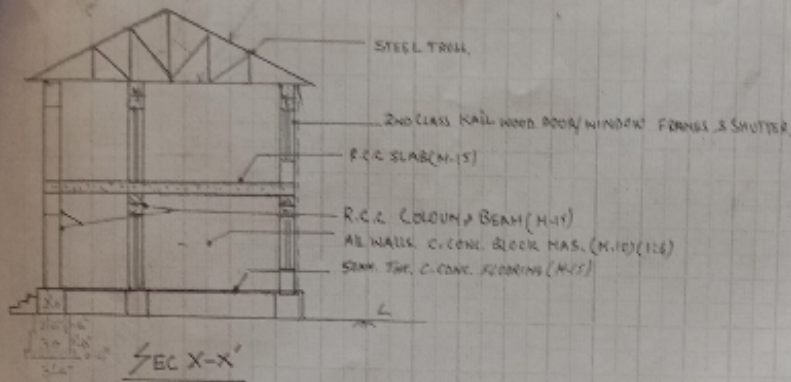 STEEL TROLL.
2ND CLASS KAIL WOOD DOOR/WINDOW FRAMES & SHUTTER.
R.C.C SLAB(M-15)
R.C.C COLOUN & BEAM(M-15)
ALL WALLS. C.CONC. BLOCK MAS. (M-10)(1:2:6)
THK. C.CONC. FLOORING(M-15)
SEC X-X'